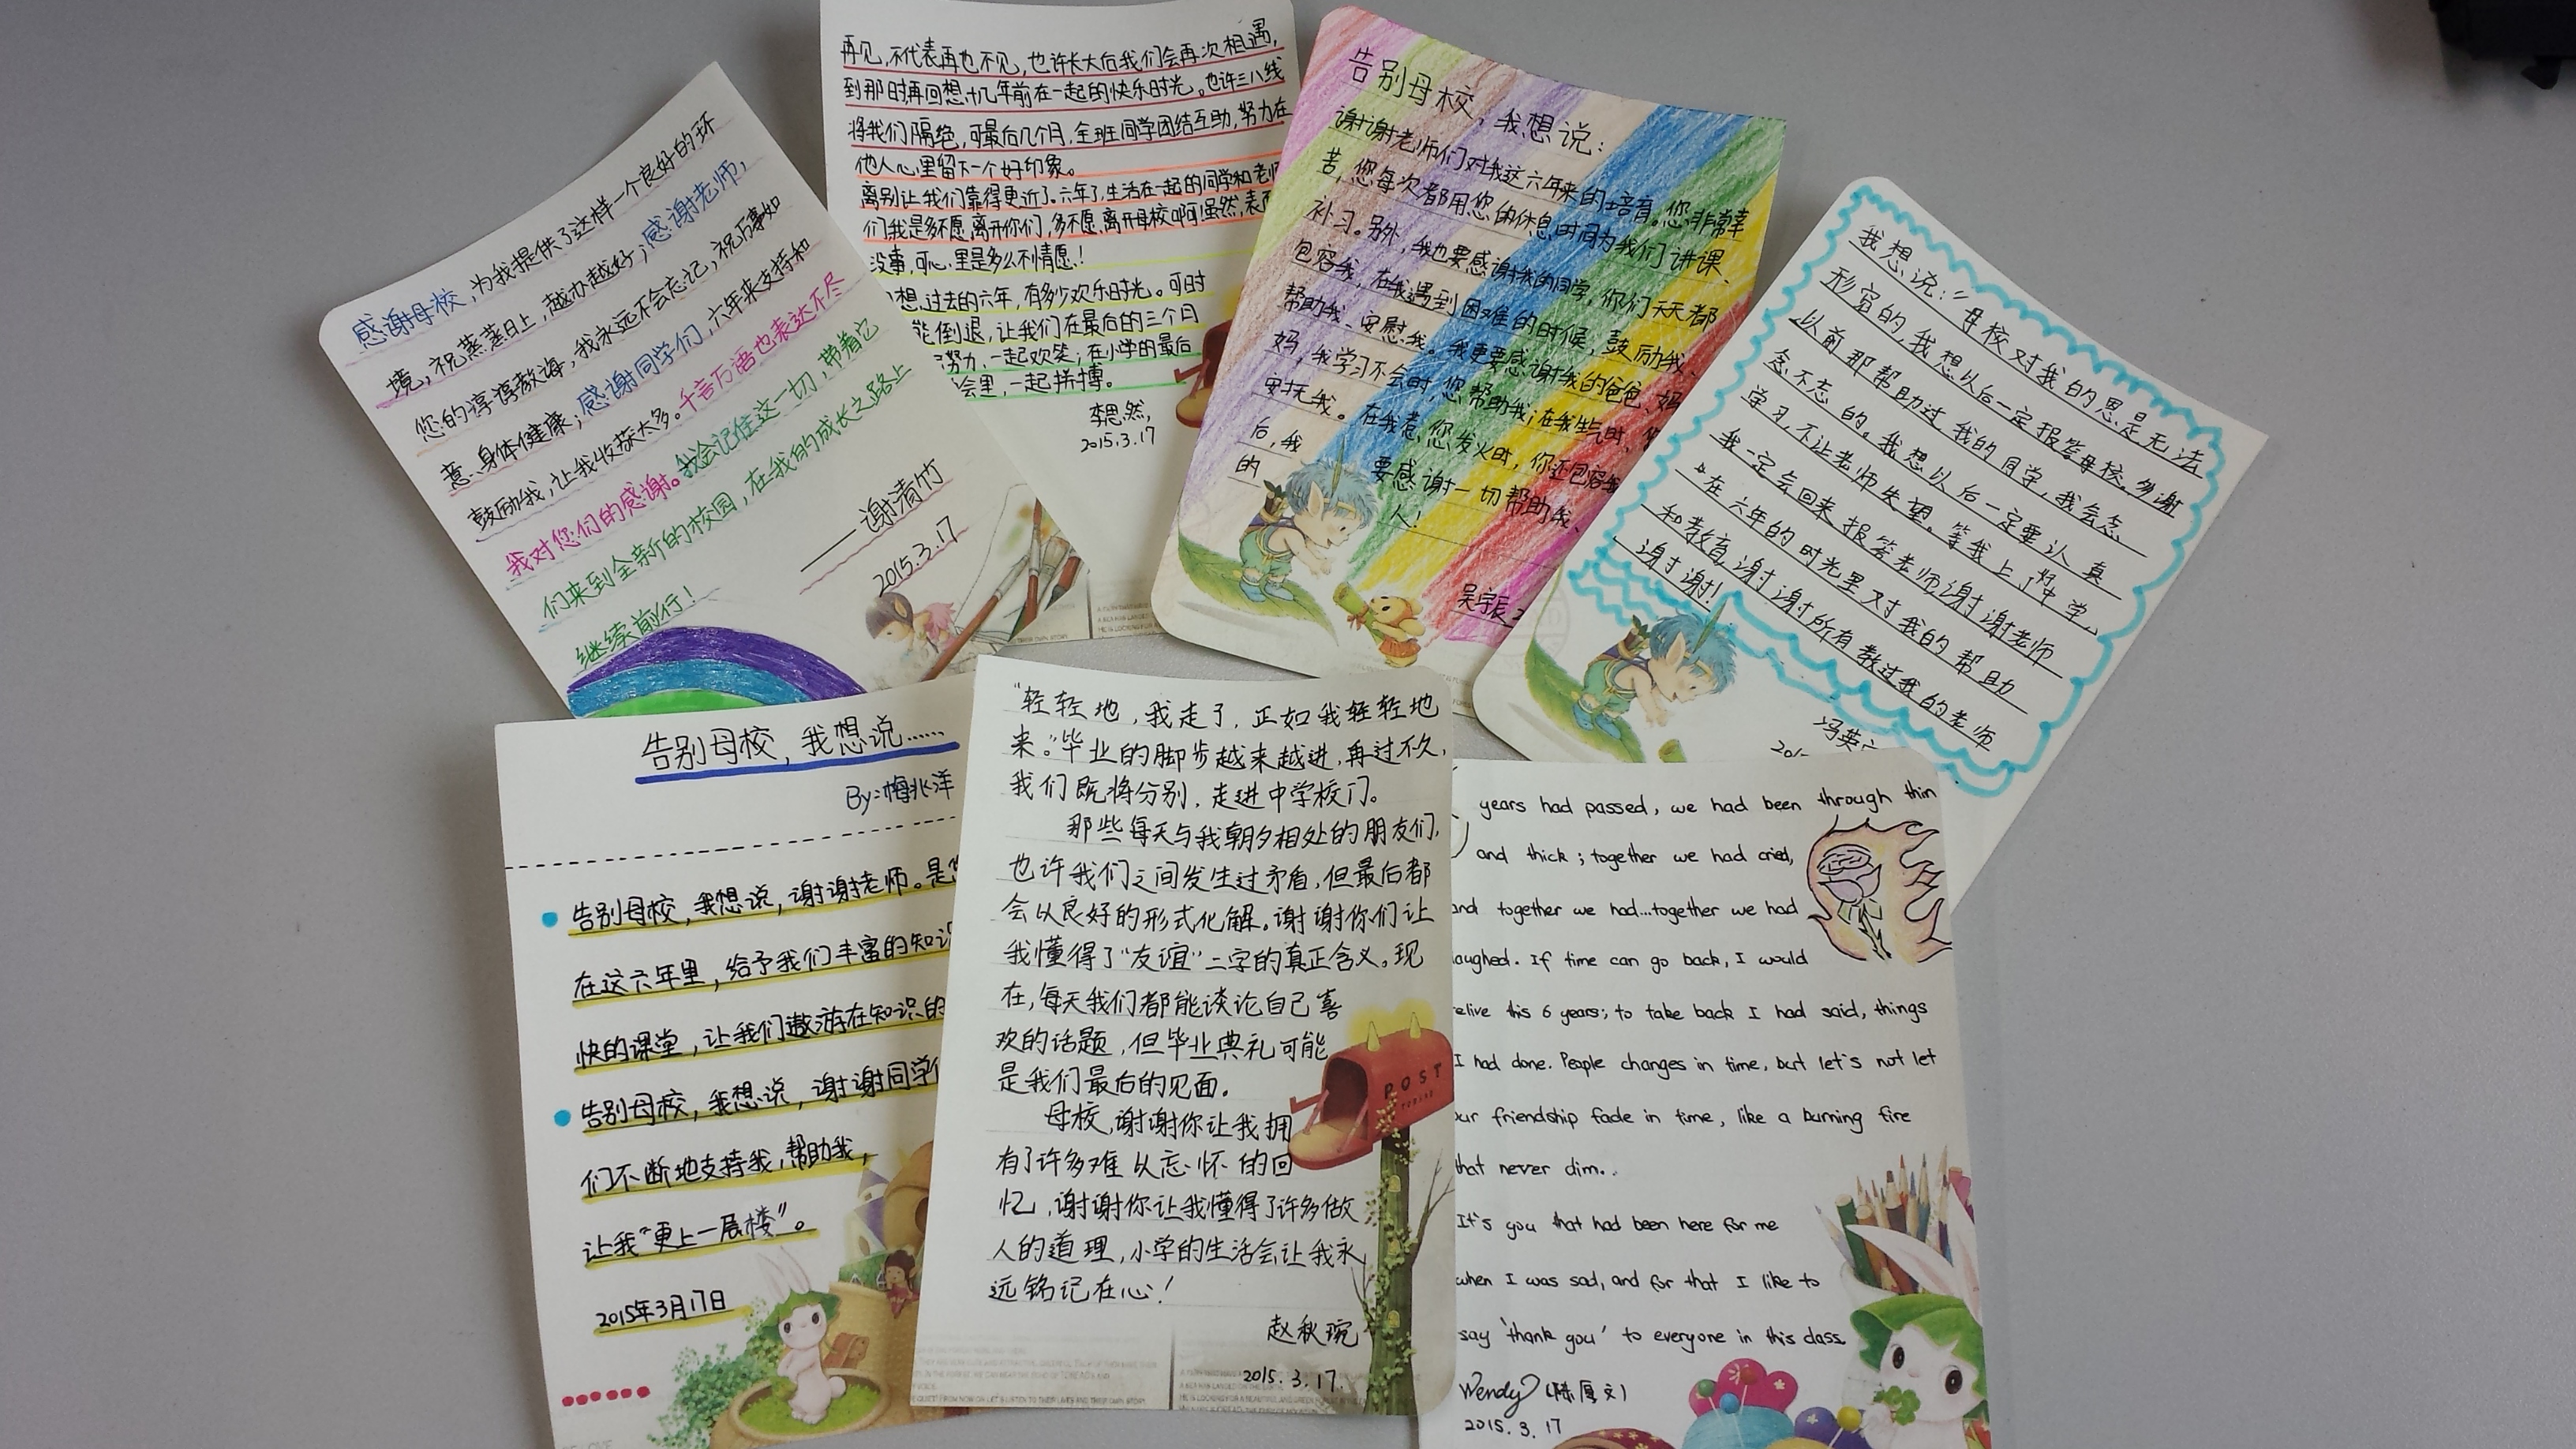 感谢母校，为我提供了这样一个良好的环
境，祝蒸蒸日上，越办越好；感谢老师，
您的谆谆教诲，我永远不会忘记，祝万事如
意、身体健康；感谢同学们，六年来支持和
鼓励我，让我收获太多。千言万语也表达不尽
我对您们的感谢。我会记住这一切，带着它
们来到全新的校园，在我的成长之路上
继续前行！
——谢清竹
2015.3.17
再见，不代表再也不见，也许长大后我们会再次相遇，
到那时再回想十几年前在一起的快乐时光。也许三八线
将我们隔绝，可最后几个月，全班同学团结互助，努力在
他人心里留下一个好印象。
离别让我们靠得更近了。六年了，生活在一起的同学和老师
们我是多不愿离开你们，多不愿离开母校啊！虽然，表面
没事，可心里是多么不情愿！
想过去的六年，有多少欢乐时光。可时
能倒退，让我们在最后的三个月
努力、一起欢笑；在小学的最后
会里，一起拼搏。
李思然，
2015.3.17
告别母校，我想说：
谢谢老师们对我这六年来的培育。您非常辛
苦，您每次都用您的休息时间为我们讲课、
补习。另外，我也要感谢我的同学，你们天天都
包容我，在我遇到困难的时候，鼓励我、
帮助我、安慰我。我更要感谢我的爸爸、妈
妈，我学习不会时，您帮助我；在我生气时，您
安抚我。在我惹您发火时，你还包容我
后，我要感谢一切帮助我、
的人！
吴宇辰
我想说：“母校对我的恩是无法
形容的，我想以后一定报答母校。多谢
以前那帮助过我的同学，我会念
念不忘的。我想以后一定要认真
学习，不让老师失望。等我上了好中学，
我一定会回来报答老师谢谢老师
在六年的时光里对我的帮助
和教育谢谢所有教过我的老师
谢谢！
冯英
告别母校，我想说……
By：梅兆洋
告别母校，我想说，谢谢老师。是
在这六年里，给予我们丰富的知识
快的课堂，让我们遨游在知识的
告别母校，我想说，谢谢同学
们不断地支持我，帮助我，
让我“更上一层楼”。
2015年3月17日
“轻轻地，我走了，正如我轻轻地
来。”毕业的脚步越来越进，再过不久，
我们既将分别，走进中学校门。
那些每天与我朝夕相处的朋友们，
也许我们之间发生过矛盾，但最后都
会以良好的形式化解。谢谢你们让
我懂得了“友谊”二字的真正含义。现
在，每天我们都能谈论自己喜
欢的话题，但毕业典礼可能
是我们最后的见面。
母校，谢谢你让我拥
有了许多难以忘怀的回
忆，谢谢你让我懂得了许多做
人的道理，小学的生活会让我永
远铭记在心！
赵秋琬
2015.3.17.
POST
years had passed, we had been through thin
and thick; together we had cried,
and together we had...together we had
laughed. If time can go back, I would
relive this 6 years; to take back I had said, things
I had done. People changes in time, but let's not let
our friendship fade in time, like a burning fire
that never dim..
It's you that had been here for me
when I was sad, and for that I like to
say 'thank you' to everyone in this class.
Wendy (陈厚文)
2015.3.17